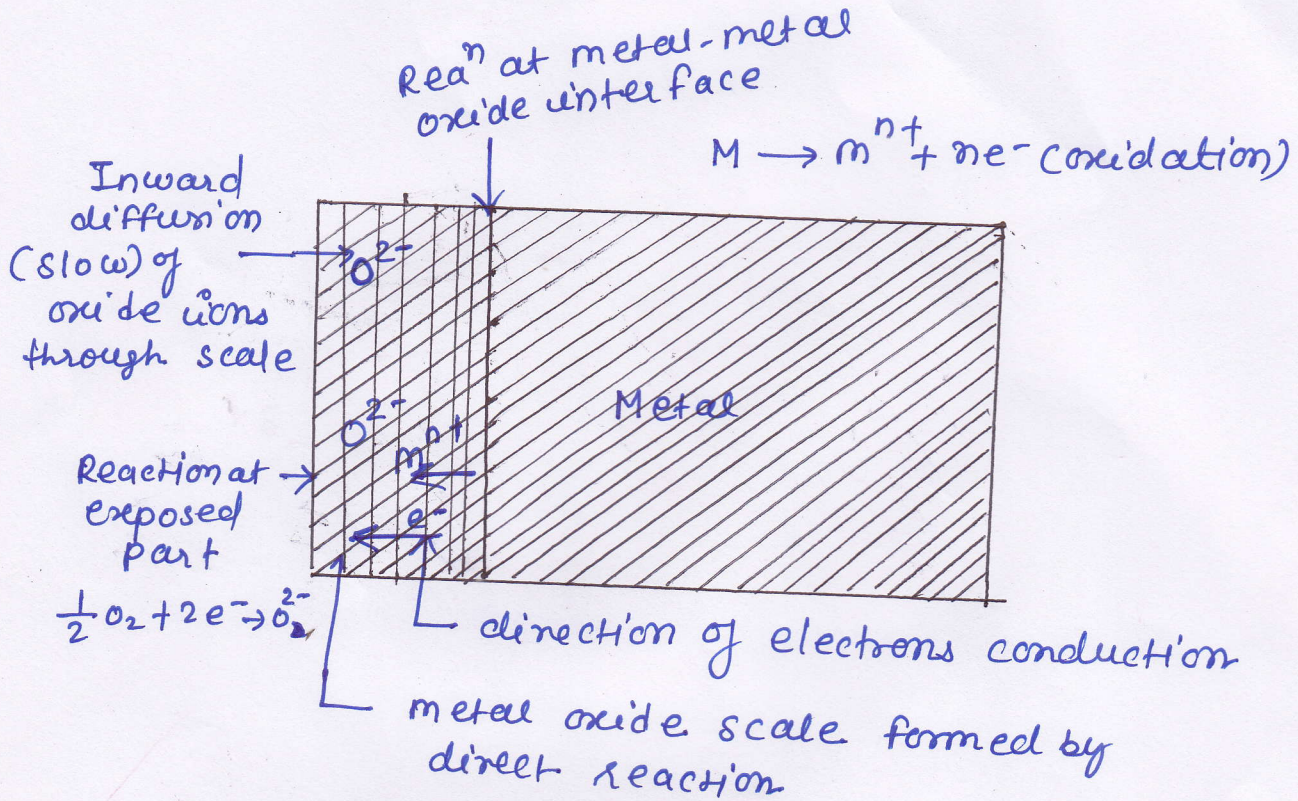 Reaⁿ at metal-metal
oxide interface
M → mⁿ⁺ + ne⁻ (oxidation)
Inward
diffusion
(slow) of
oxide ions
through scale
O²⁻
Metal
O²⁻
mⁿ⁺
e⁻
Reaction at
exposed
part
½ O₂ + 2e⁻ → O₂²⁻
direction of electrons conduction
metal oxide scale formed by
direct reaction